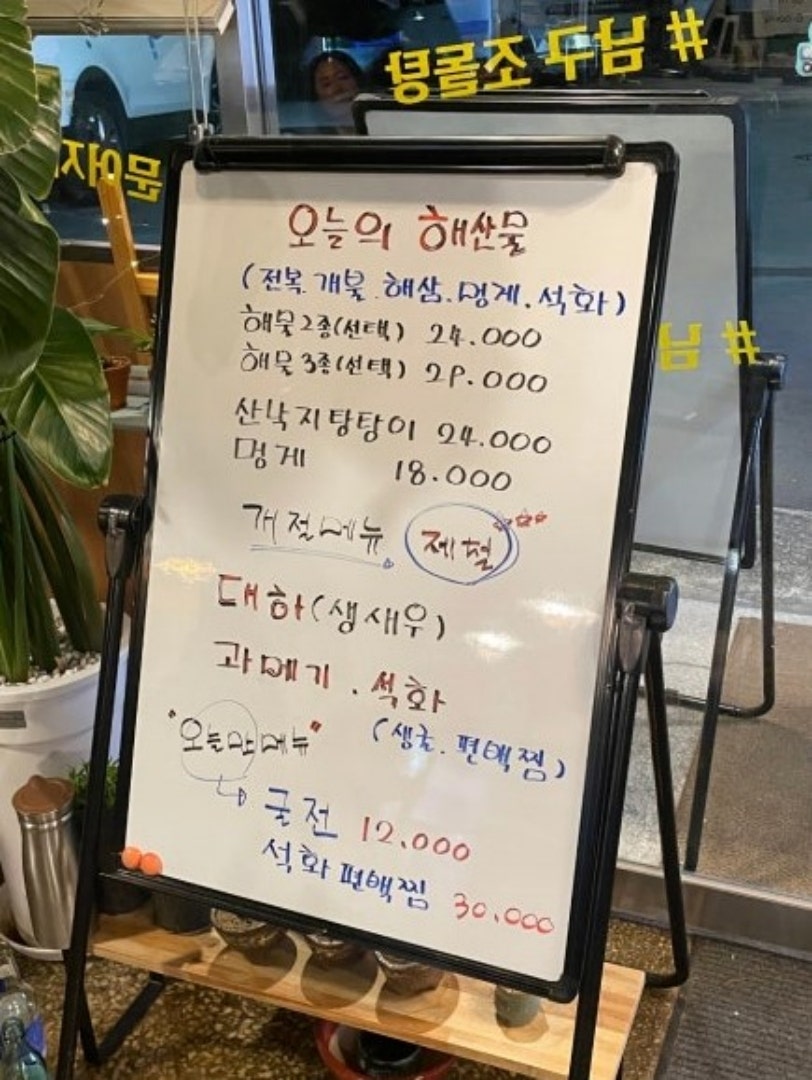 #남구조몰탕
문어지
#남
오늘의 해산물
(전복.개불.해삼.멍게.석화)
해물2종(선택) 24.000
해물3종(선택) 29.000
산낙지탕탕이 24.000
멍게 18.000
계절메뉴 제철
대하(생새우)
과메기.석화
(생굴.편백찜)
"오늘만메뉴"
굴전 12.000
석화편백찜 30.000